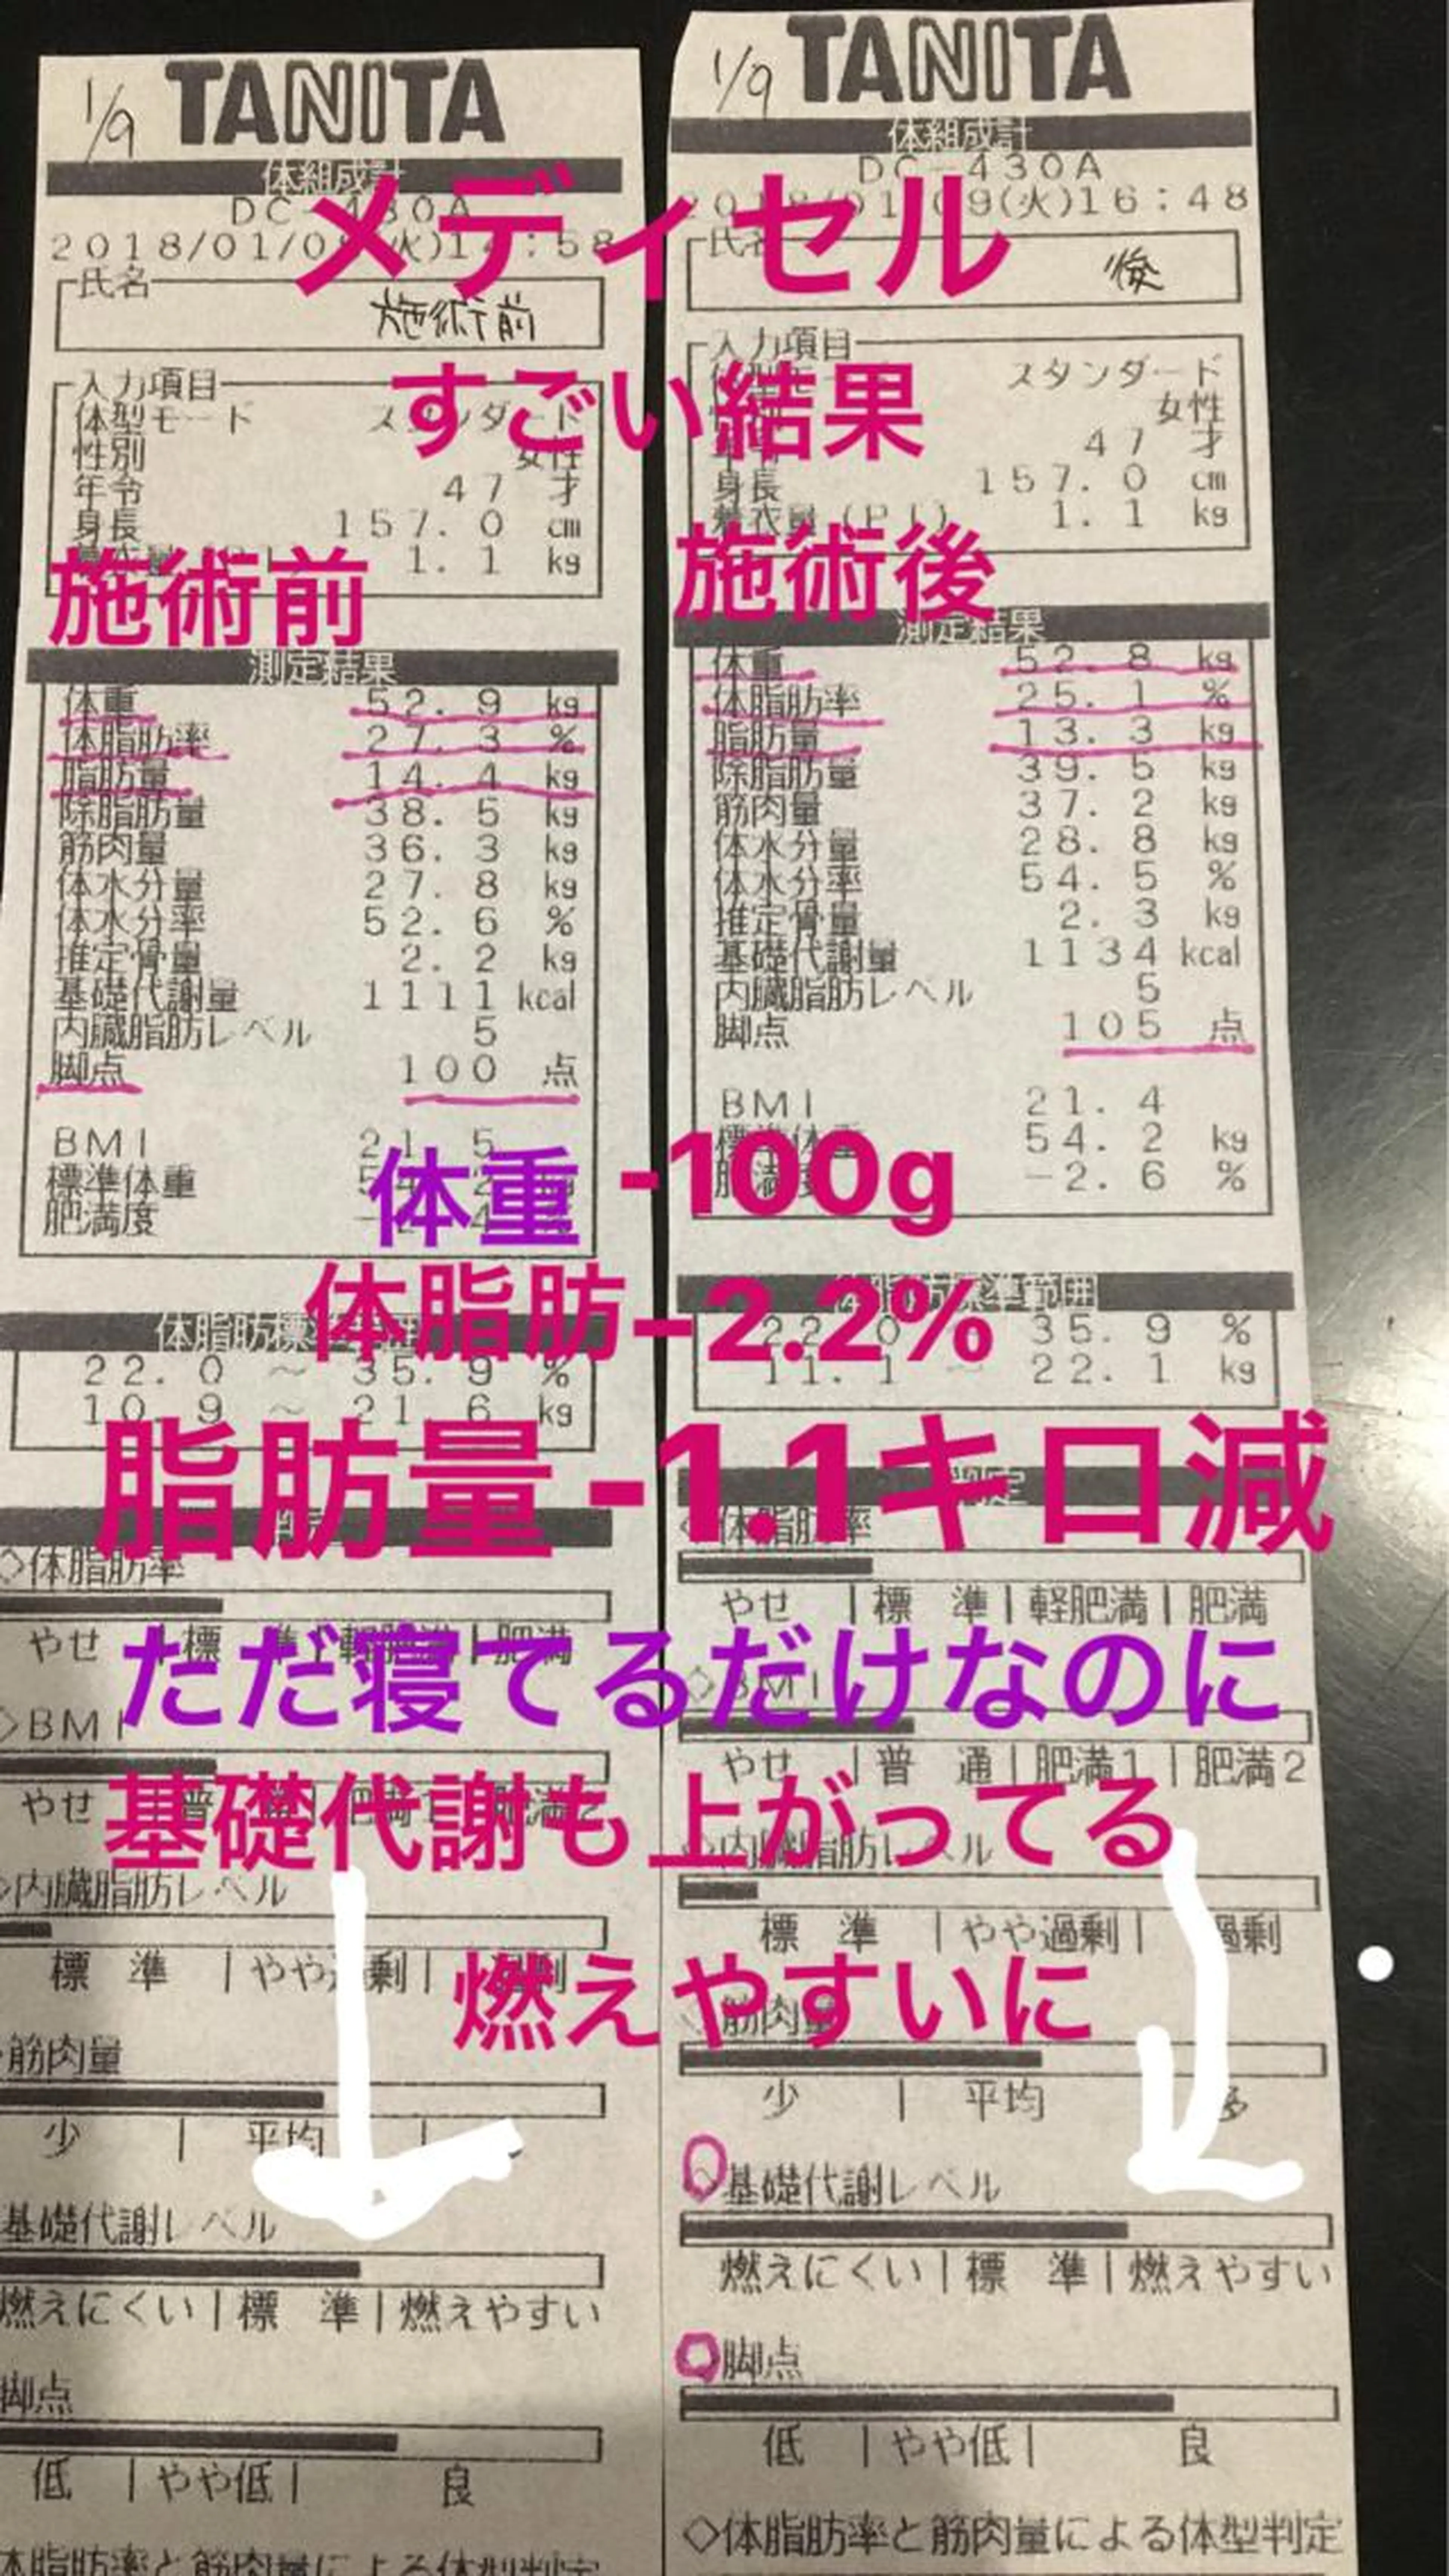 1/9
TANITA
体組成計
DC-430A
2018/01/0 (火)1 :58
氏名
施術前
入力項目
体型モード スタンダード
性別 女性
年令 47 才
身長 157.0 cm
1.1 kg
施術前
測定結果
体重 52.9 kg
体脂肪率 27.3 %
脂肪量 14.4 kg
除脂肪量 38.5 kg
筋肉量 36.3 kg
体水分量 27.8 kg
体水分率 52.6 %
推定骨量 2.2 kg
基礎代謝量 1111 kcal
内臓脂肪レベル 5
脚点 100 点
BMI 21.5
標準体重
肥満度
体脂肪標準範囲
22.0 ~ 35.9 %
10.9 ~ 21.6 kg
判定
◇体脂肪率
やせ |標 準|軽肥満|肥満
◇BMI
やせ |普 通|肥満1|肥満2
◇内臓脂肪レベル
標 準 |やや過剰| 過剰
筋肉量
少 | 平均 |
基礎代謝レベル
燃えにくい|標 準|燃えやすい
脚点
低 |やや低| 良
体脂肪率と筋肉量による体型判定
1/9
TANITA
体組成計
DC-430A
2018/01/09(火)16:48
氏名
後
入力項目
スタンダード
女性
年令 47 才
身長 157.0 cm
着衣量(PT) 1.1 kg
施術後
測定結果
体重 52.8 kg
体脂肪率 25.1 %
脂肪量 13.3 kg
除脂肪量 39.5 kg
筋肉量 37.2 kg
体水分量 28.8 kg
体水分率 54.5 %
推定骨量 2.3 kg
基礎代謝量 1134 kcal
内臓脂肪レベル 5
脚点 105 点
BMI 21.4
標準体重 54.2 kg
肥満度 -2.6 %
体脂肪標準範囲
22.0 35.9 %
11.1 ~ 22.1 kg
判定
◇体脂肪率
やせ |標 準|軽肥満|肥満
◇BMI
やせ |普 通|肥満1|肥満2
◇内臓脂肪レベル
標 準 |やや過剰| 過剰
◇筋肉量
少 | 平均 多
◇基礎代謝レベル
燃えにくい|標 準|燃えやすい
脚点
低 |やや低| 良
◇体脂肪率と筋肉量による体型判定
メディセル
すごい結果
体重 -100g
体脂肪-2.2%
脂肪量-1.1キロ減
ただ寝てるだけなのに
基礎代謝も上がってる
燃えやすいに